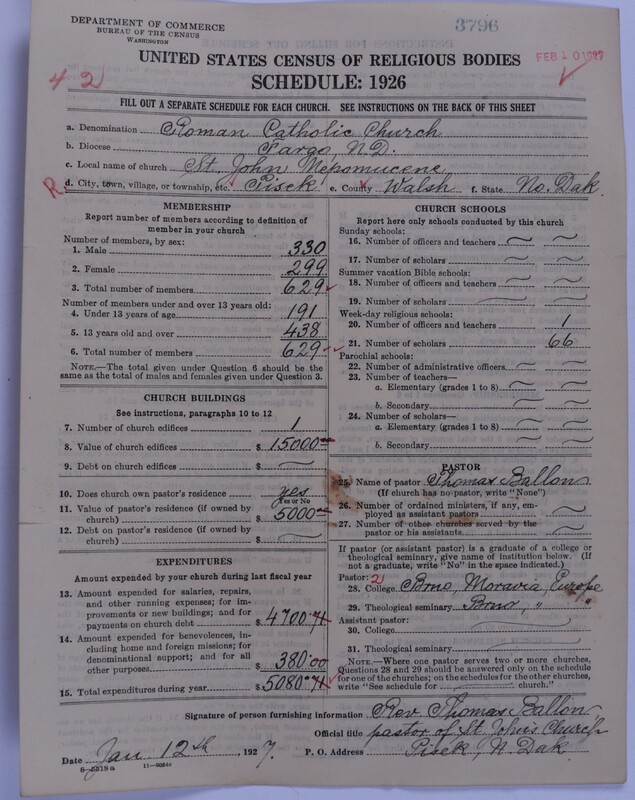 DEPARTMENT OF COMMERCE
BUREAU OF THE CENSUS
WASHINGTON
3796
FEB 10 1927
UNITED STATES CENSUS OF RELIGIOUS BODIES
42
SCHEDULE: 1926
FILL OUT A SEPARATE SCHEDULE FOR EACH CHURCH. SEE INSTRUCTIONS ON THE BACK OF THIS SHEET
a. Denomination Roman Catholic Church
b. Diocese Fargo, N.D.
c. Local name of church St. John Nepomucene
R d. City, town, village, or township, etc. Pisek e. County Walsh f. State No. Dak.
MEMBERSHIP
Report number of members according to definition of
member in your church
Number of members, by sex:
1. Male 330
2. Female 299
3. Total number of members 629
Number of members under and over 13 years old:
4. Under 13 years of age 191
5. 13 years old and over 438
6. Total number of members 629
NOTE.—The total given under Question 6 should be the
same as the total of males and females given under Question 3.
CHURCH BUILDINGS
See instructions, paragraphs 10 to 12
7. Number of church edifices 1
8. Value of church edifices $ 15000
9. Debt on church edifices $
10. Does church own pastor's residence yes
Yes or No
11. Value of pastor's residence (if owned by
church) $ 5000
12. Debt on pastor's residence (if owned by
church) $
EXPENDITURES
Amount expended by your church during last fiscal year
13. Amount expended for salaries, repairs,
and other running expenses; for im-
provements or new buildings; and for
payments on church debt $ 4700.71
14. Amount expended for benevolences, in-
cluding home and foreign missions; for
denominational support; and for all
other purposes $ 380.00
15. Total expenditures during year $ 5080.71
CHURCH SCHOOLS
Report here only schools conducted by this church
Sunday schools:
16. Number of officers and teachers
17. Number of scholars
Summer vacation Bible schools:
18. Number of officers and teachers
19. Number of scholars
Week-day religious schools:
20. Number of officers and teachers 1
21. Number of scholars 66
Parochial schools:
22. Number of administrative officers
23. Number of teachers—
a. Elementary (grades 1 to 8)
b. Secondary
24. Number of scholars—
a. Elementary (grades 1 to 8)
b. Secondary
PASTOR
25. Name of pastor Thomas Ballon
(If church has no pastor, write "None")
26. Number of ordained ministers, if any, em-
ployed as assistant pastors
27. Number of other churches served by the
pastor or his assistants
If pastor (or assistant pastor) is a graduate of a college or
theological seminary, give name of institution below. (If
not a graduate, write "No" in the space indicated.)
Pastor: 2
28. College Brno, Moravia, Europe
29. Theological seminary Brno, " "
Assistant pastor:
30. College
31. Theological seminary
NOTE.—Where one pastor serves two or more churches,
Questions 28 and 29 should be answered only on the schedule
for one of the churches; on the schedules for the other churches,
write "See schedule for church."
Signature of person furnishing information Rev. Thomas Ballon
Official title pastor of St. John's Church
Date Jan. 12th, 1927. P. O. Address Pisek, N. Dak
8—5318a 11—9084a